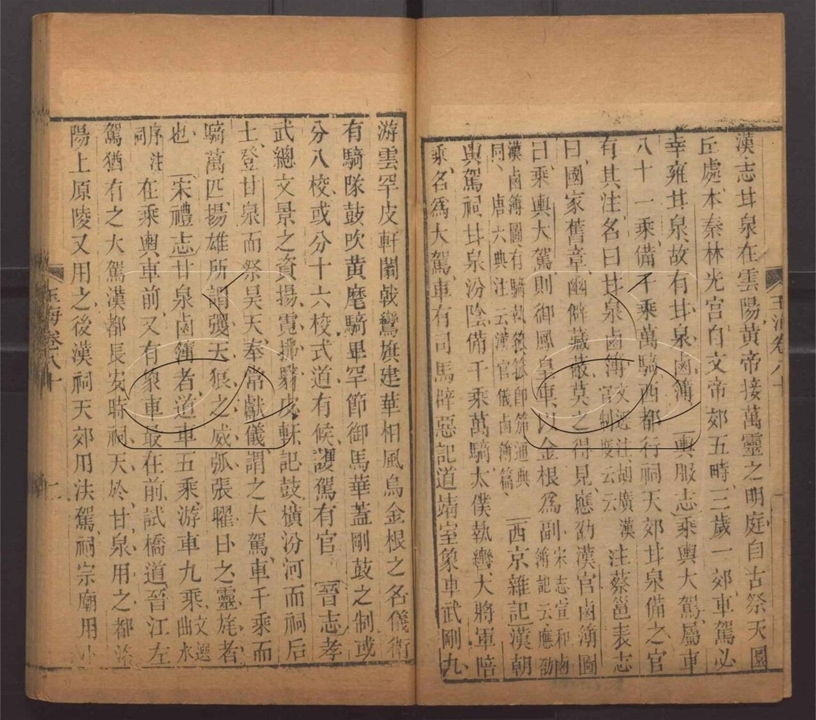 漢志甘泉在雲陽黃帝接萬靈之明庭自古祭天圜
丘處本秦林光宫自文帝郊五畤三歲一郊車駕必
幸雍甘泉故有甘泉鹵簿輿服志乘輿大駕屬車
八十一乘備千乘萬騎西都行祠天郊甘泉備之官
有其注名曰甘泉鹵簿文選注胡廣漢官制度云云注蔡邕表志
曰國家舊章幽僻藏蔽莫之得見應劭漢官鹵簿圖
曰乘輿大駕則御鳳皇車以金根爲副宋志宣和鹵簿記云應劭
漢鹵簿圖有騎執
同唐六典注云漢官儀鹵簿篇西京雜記漢朝
輿駕祠甘泉汾陰備千乘萬騎太僕執轡大將軍陪
乘名爲大駕車有司馬辟惡記道靖室象車武剛九
游雲罕皮軒闟戟鸞旗建華相風烏金根之名儀衛
有騎隊鼓吹黃麾騎畢罕節御馬華蓋剛鼓之制或
分八校或分十六校式道有候護駕有官晉志孝
武總文景之資揚霓拂翳皮軒記鼓橫汾河而祠后
土登甘泉而祭昊天奉常獻儀謂之大駕車千乘而
騎萬匹揚雄所謂彏天狼之威弧張曜日之靈旄者
也宋禮志甘泉鹵簿者道車五乘游車九乘文選曲水
序注在乘輿車前又有象車最在前試橋道晉江左
駕猶有之大駕漢都長安時祠天於甘泉用之都洛
陽上原陵又用之後漢祠天郊用法駕祠宗廟用小
玉海卷八十
玉海卷八十